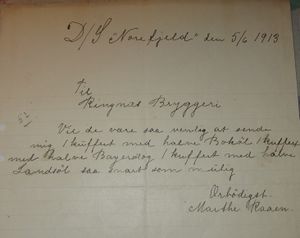 D/S "Norefjeld" den 5/6 1913
Til
Ringnæs Bryggeri
Vil de være saa venlig at sende
mig 1 kuffert med halve Bokøl 1 kuffert
med halve Bayersøl og 1 kuffert med halve
Landsøl saa snart som mulig
Ærbødigst
Marthe Raaen.